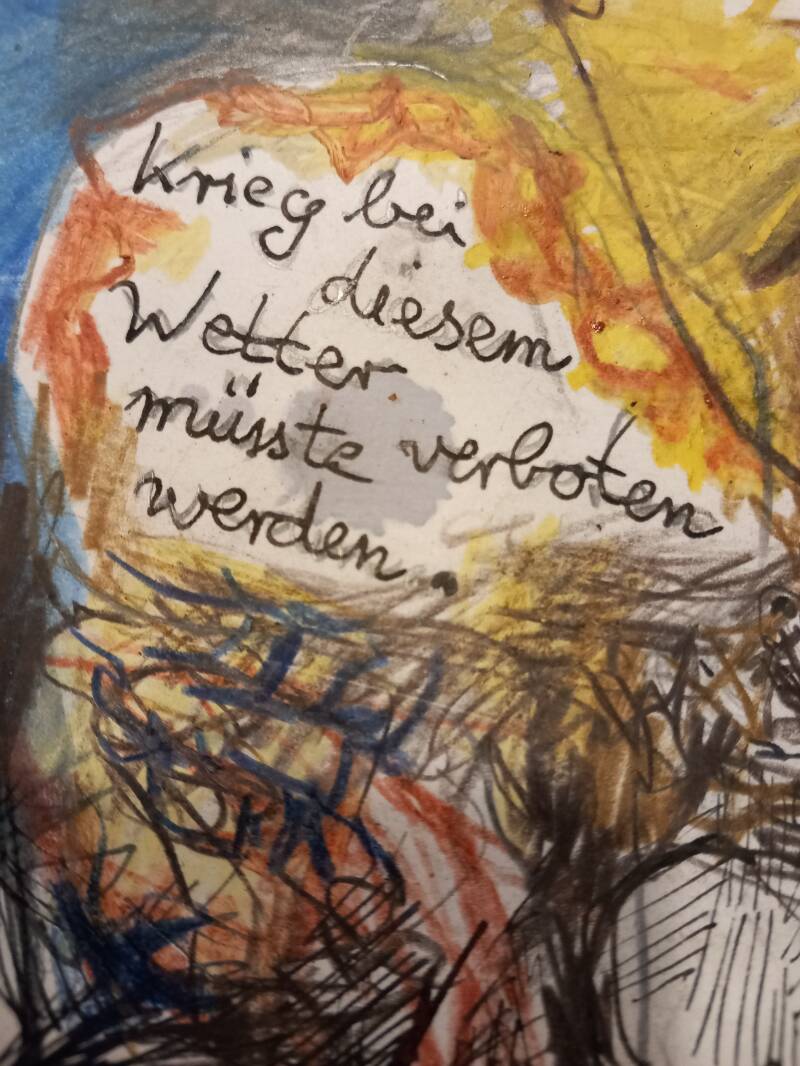 Krieg bei
diesem
Wetter
müsste verboten
werden.